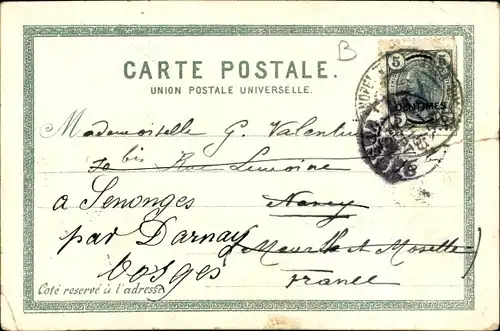 B
5 5
CENTIMES
CARTE POSTALE.
UNION POSTALE UNIVERSELLE.
Mademoiselle G. Valentin
bis Rue Lemoine
a Senonges Nancy
par Darnay Meurthe et Moselle)
Vosges France
Coté reservé à l'adresse